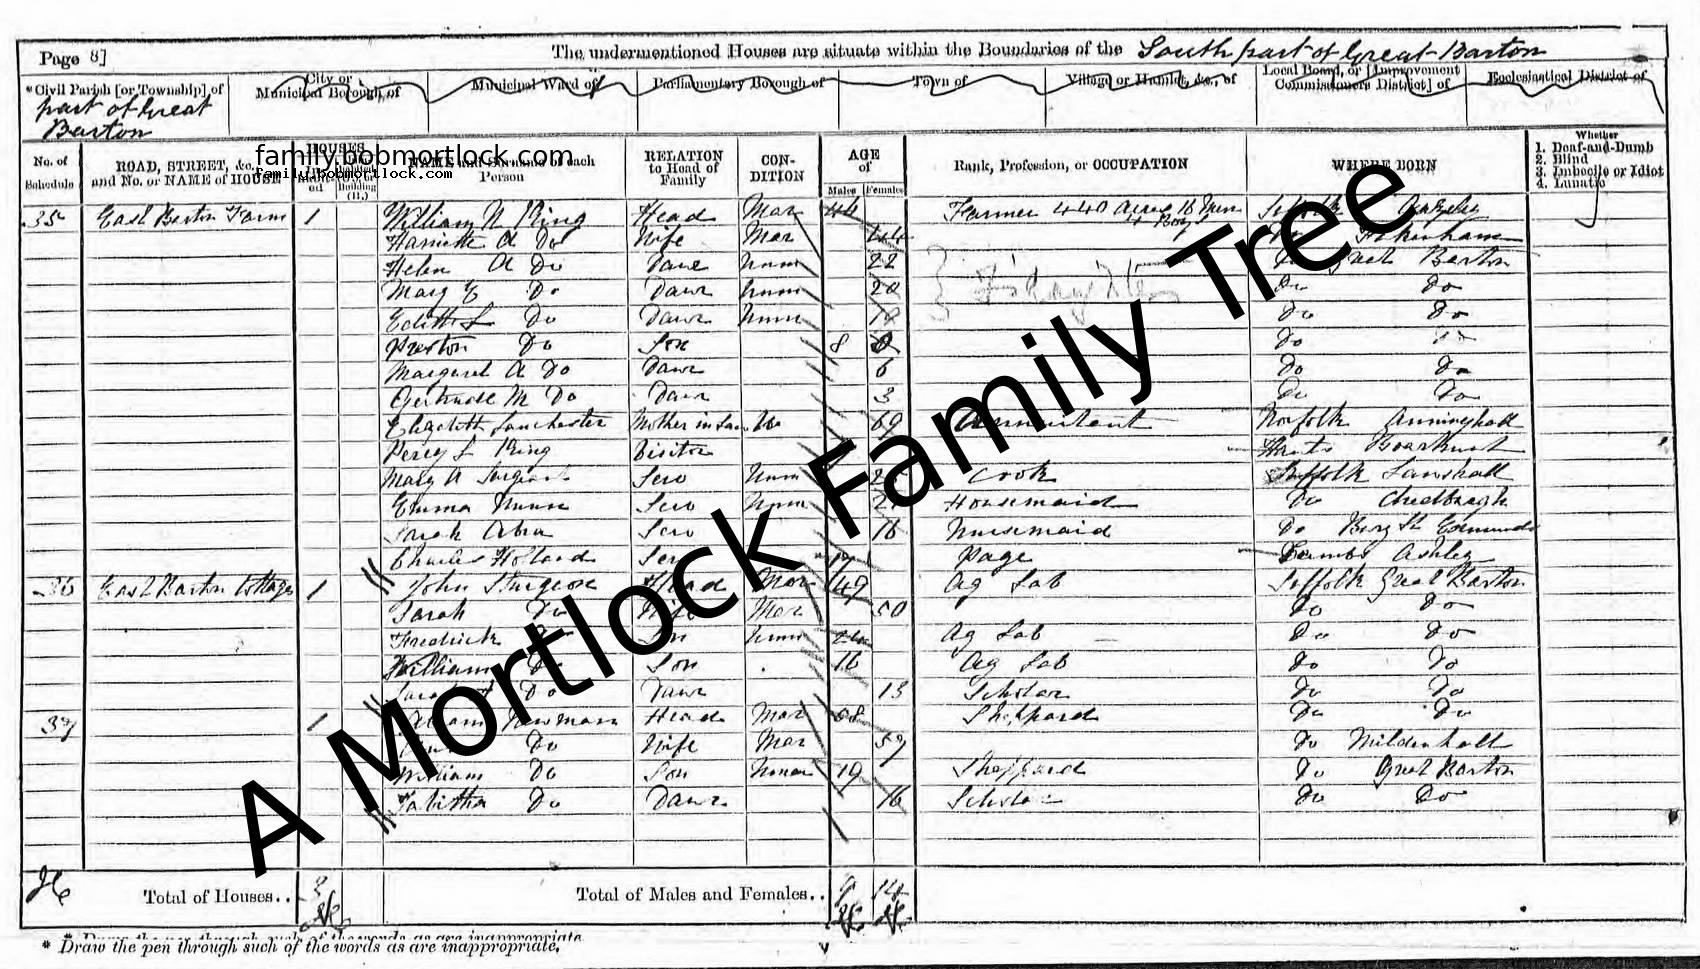 Page 8]
The undermentioned Houses are situate within the Boundaries of the South part of Great Barton
*Civil Parish [or Township] of
part of Great
Barton
City or
Municipal Borough of
Municipal Ward of
Parliamentary Borough of
Town of
Village or Hamlet, &c., of
Local Board, or [Improvement
Commissioners District] of
Ecclesiastical District of
No. of
Schedule
ROAD, STREET, &c.,
and No. or NAME of HOUSE
HOUSES
family.bobmortlock.com
family.bobmortlock.com
NAME and Surname of each
Person
RELATION
to Head of
Family
CON-
DITION
AGE
of
Males
Females
Rank, Profession, or OCCUPATION
WHERE BORN
Whether
1. Deaf-and-Dumb
2. Blind
3. Imbecile or Idiot
4. Lunatic
35 East Barton Farm 1 William N King Head Mar 46 Farmer 440 Acres 16 Men Suffolk
Harriette A Do Wife Mar 44 Do Fakenham
Helen A Do Daur Unm 22 Do Great Barton
Mary E Do Daur Unm 20 Do Do
Edith L Do Daur Unm Do Do
Preston Do Son 8 Do Do
Margaret A Do Daur 6 Do Do
Gertrude M Do Daur 3 Do Do
Elizabeth Lanchester Mother in Law 69 Annuitant Norfolk
Percy L King Visitor Hants
Mary A Serv Unm Cook Suffolk Lawshall
Emma Nunn Serv Unm Housemaid Do Chedburgh
Sarah Serv 16 Nursemaid Do Bury St Edmunds
Charles Holland Serv 17 Page Cambs Ashley
36 East Barton Cottages 1 John Sturgeon Head Mar 49 Ag Lab Suffolk Great Barton
Sarah Do Wife Mar 50 Do Do
Fredrick Do Son Unm Ag Lab Do Do
William Do Son 16 Ag Lab Do Do
Do Daur 13 Scholar Do Do
37 1 Newman Head Mar 58 Sheppard Do Do
Do Wife Mar 59 Do Mildenhall
William Do Son Unm 19 Sheppard Do Great Barton
Tabitha Do Daur 16 Scholar Do Do
A Mortlock Family Tree
Total of Houses.. 3
Total of Males and Females.. 9 14
* Draw the pen through such of the words as are inappropriate.